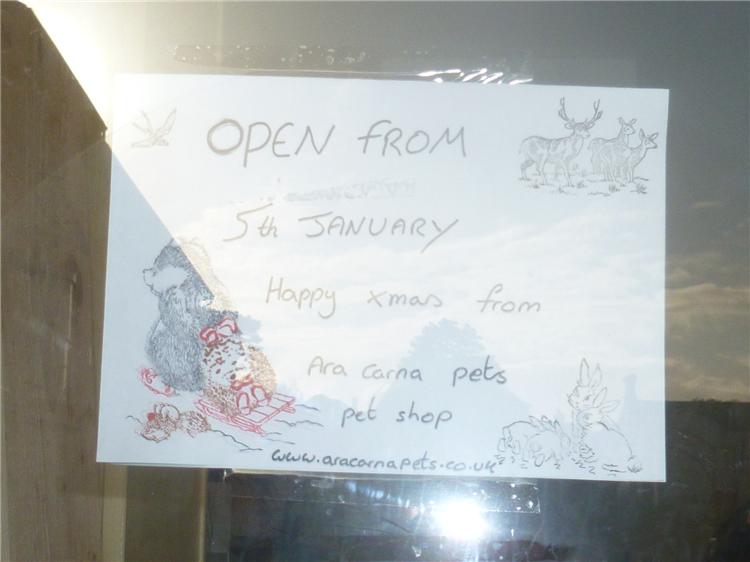 OPEN FROM
5th JANUARY
Happy xmas from
Ara carna pets
pet shop
www.aracarnapets.co.uk